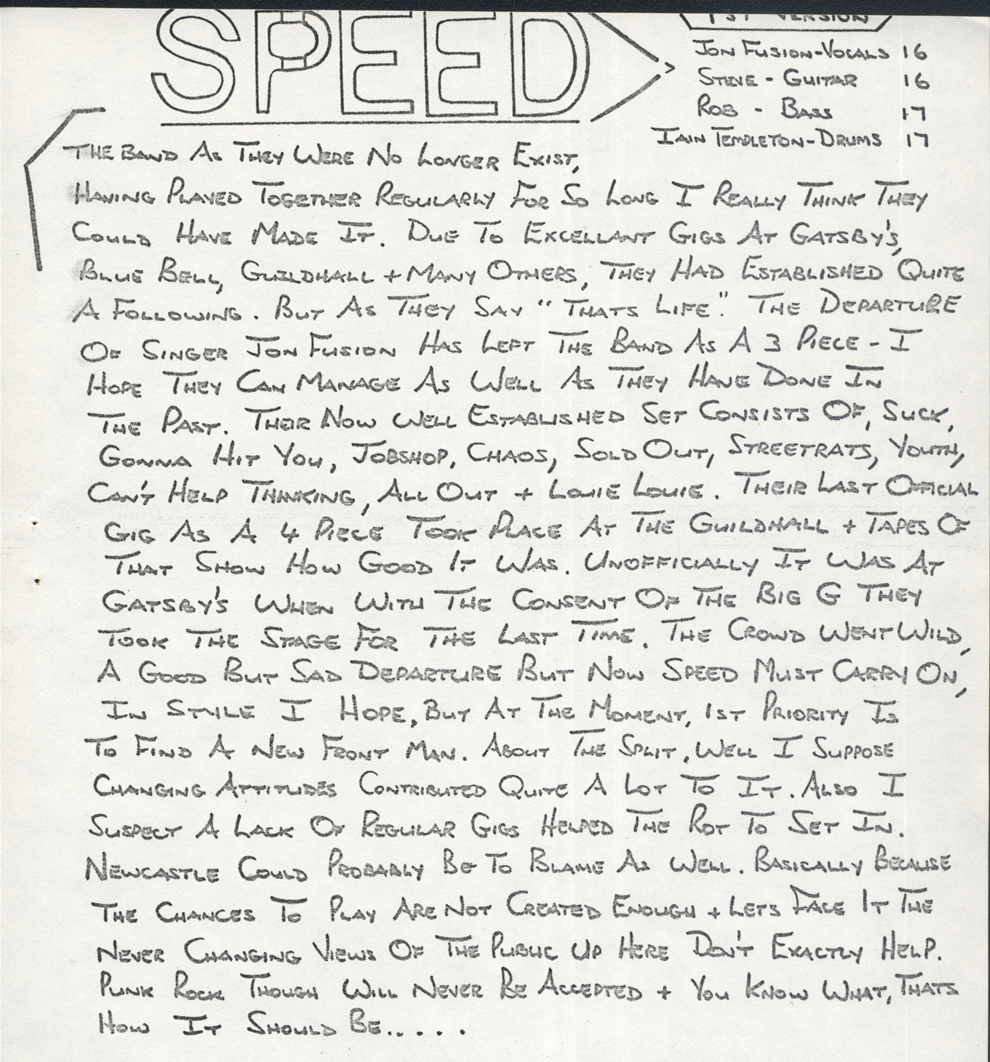 SPEED
1ST VERSION
JON FUSION-VOCALS 16
STEVE - GUITAR 16
ROB - BASS 17
IAIN TEMPLETON-DRUMS 17
THE BAND AS THEY WERE NO LONGER EXIST,
HAVING PLAYED TOGETHER REGULARLY FOR SO LONG I REALLY THINK THEY
COULD HAVE MADE IT. DUE TO EXCELLANT GIGS AT GATSBY'S,
BLUE BELL, GUILDHALL + MANY OTHERS, THEY HAD ESTABLISHED QUITE
A FOLLOWING. BUT AS THEY SAY "THATS LIFE". THE DEPARTURE
OF SINGER JON FUSION HAS LEFT THE BAND AS A 3 PIECE - I
HOPE THEY CAN MANAGE AS WELL AS THEY HAVE DONE IN
THE PAST. THEIR NOW WELL ESTABLISHED SET CONSISTS OF, SUCK,
GONNA HIT YOU, JOBSHOP, CHAOS, SOLD OUT, STREETRATS, YOUTH,
CAN'T HELP THINKING, ALL OUT + LOUIE LOUIE. THEIR LAST OFFICIAL
GIG AS A 4 PIECE TOOK PLACE AT THE GUILDHALL + TAPES OF
THAT SHOW HOW GOOD IT WAS. UNOFFICIALLY IT WAS AT
GATSBY'S WHEN WITH THE CONSENT OF THE BIG G THEY
TOOK THE STAGE FOR THE LAST TIME. THE CROWD WENT WILD,
A GOOD BUT SAD DEPARTURE BUT NOW SPEED MUST CARRY ON,
IN STYLE I HOPE, BUT AT THE MOMENT, 1ST PRIORITY IS
TO FIND A NEW FRONT MAN. ABOUT THE SPLIT, WELL I SUPPOSE
CHANGING ATTITUDES CONTRIBUTED QUITE A LOT TO IT. ALSO I
SUSPECT A LACK OF REGULAR GIGS HELPED THE ROT TO SET IN.
NEWCASTLE COULD PROBABLY BE TO BLAME AS WELL. BASICALLY BECAUSE
THE CHANCES TO PLAY ARE NOT CREATED ENOUGH + LETS FACE IT THE
NEVER CHANGING VIEWS OF THE PUBLIC UP HERE DON'T EXACTLY HELP.
PUNK ROCK THOUGH WILL NEVER BE ACCEPTED + YOU KNOW WHAT, THATS
HOW IT SHOULD BE.....